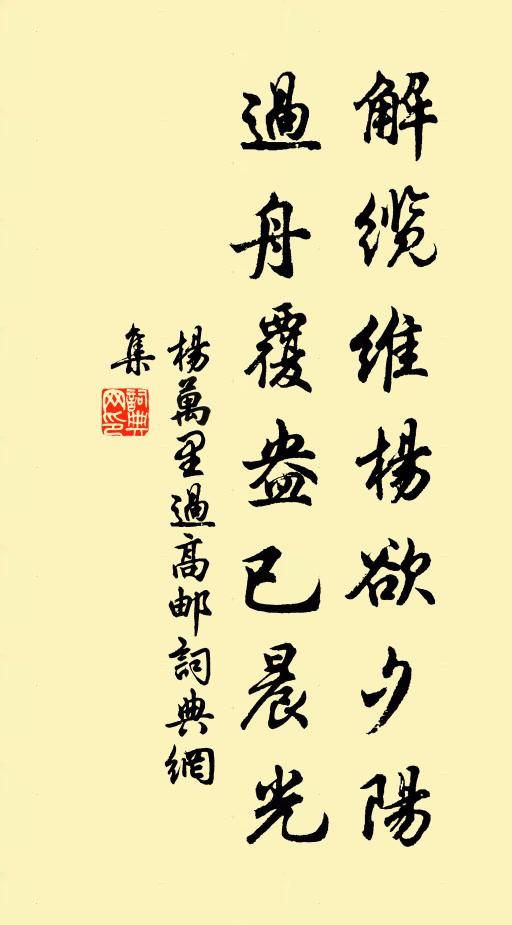 解缆维楊欲夕陽
過舟覆盎已晨光
楊萬里過高邮詞典網
集
詞典網印